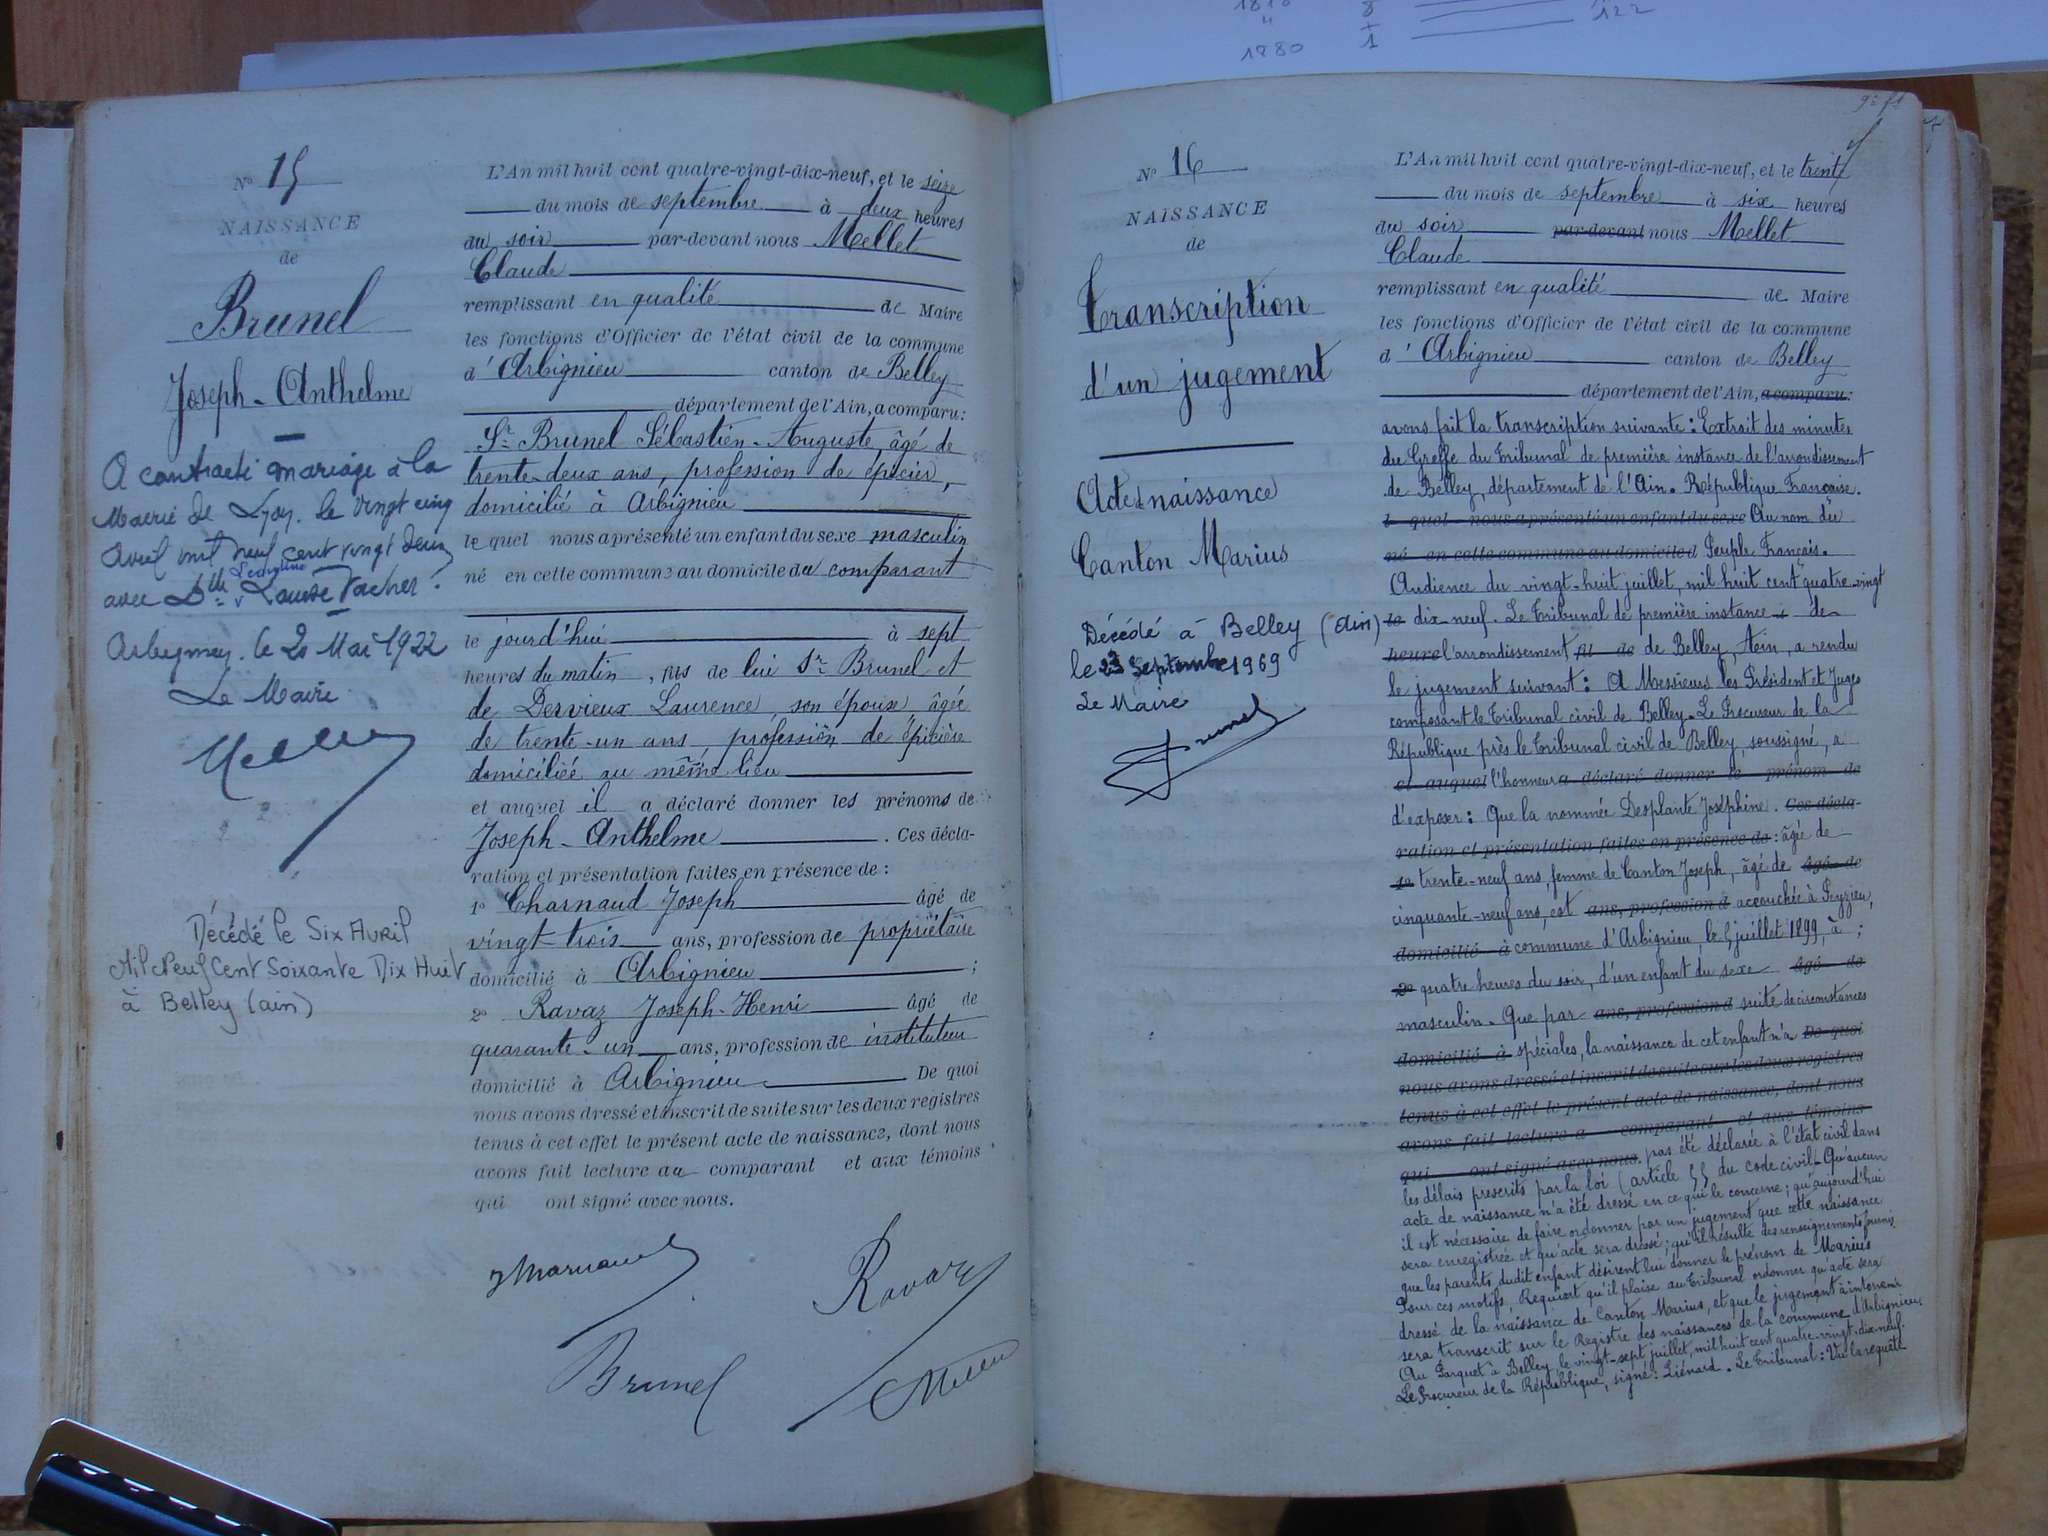 1880
8
1
122
N° 15
NAISSANCE
de
Brunel
Joseph-Anthelme
A contracté mariage à la
Mairie de Lyon. le vingt cinq
avril mil neuf cent vingt deux
avec Dlle Louise Vacher.
le 20 Mai 1922
Le Maire
Décédé le Six Avril
Mil Neuf Cent Soixante Dix Huit
à Belley (ain)
L'An mil huit cent quatre-vingt-dix-neuf, et le seize
du mois de septembre à deux heures
du soir par-devant nous Mellet
Claude
remplissant en qualité de Maire
les fonctions d'Officier de l'état civil de la commune
d'Arbignieu canton de Belley
département de l'Ain, a comparu:
Sr Brunel Sébastien-Auguste, âgé de
trente-deux ans, profession de épicier,
domicilié à Arbignieu
lequel nous a présenté un enfant du sexe masculin
né en cette commune au domicile du comparant
le jourd'hui à sept
heures du matin, fils de lui Sr Brunel et
de Dervieux Laurence, son épouse âgée
de trente-un ans, profession de épicière
domiciliée au même lieu
et auquel il a déclaré donner les prénoms de
Joseph-Anthelme. Ces décla-
ration et présentation faites en présence de :
1° Charnaud Joseph âgé de
vingt-trois ans, profession de propriétaire
domicilié à Arbignieu ;
2° Ravaz Joseph-Henri âgé de
quarante-un ans, profession de instituteur
domicilié à Arbignieu De quoi
nous avons dressé et inscrit de suite sur les deux registres
tenus à cet effet le présent acte de naissance, dont nous
avons fait lecture au comparant et aux témoins
qui ont signé avec nous.
Ravaz
Brunel
N° 16
NAISSANCE
de
Transcription
d'un jugement
Acte de naissance
Canton Marius
Décédé à Belley (Ain)
le 23 Septembre 1969
Le Maire
L'An mil huit cent quatre-vingt-dix-neuf, et le trente
du mois de septembre à six heures
du soir par-devant nous Mellet
Claude
remplissant en qualité de Maire
les fonctions d'Officier de l'état civil de la commune
d'Arbignieu canton de Belley
département de l'Ain, a comparu:
avons fait la transcription suivante : Extrait des minutes
du Greffe du Tribunal de première instance de l'arrondissement
de Belley, département de l'Ain. République Française.
lequel nous a présenté un enfant du sexe Au nom du
né en cette commune au domicile d Peuple Français.
Audience du vingt-huit juillet, mil huit cent quatre-vingt
le dix-neuf. Le Tribunal de première instance à de
heure l'arrondissement fil de de Belley, Ain, a rendu
le jugement suivant : A Messieurs les Président et Juges
composant le Tribunal civil de Belley. Le Procureur de la
République près le Tribunal civil de Belley, soussigné, a
et auquel l'honneur a déclaré donner le prénom de
d'exposer : Que la nommée Desplante Joséphine. Ces décla-
ration et présentation faites en présence de : âgée de
1° trente-neuf ans, femme de Canton Joseph, âgé de âgé de
cinquante-neuf ans, est ans, profession d accouchée à Peyzieu,
domicilié à commune d'Arbignieu, le 5 juillet 1899, à ;
2° quatre heures du soir, d'un enfant du sexe âgé de
masculin. Que par ans, profession d suite de circonstances
domicilié à spéciales, la naissance de cet enfant n'a De quoi
nous avons dressé et inscrit de suite sur les deux registres
tenus à cet effet le présent acte de naissance, dont nous
avons fait lecture a comparant et aux témoins
qui ont signé avec nous. pas été déclarée à l'état civil dans
les délais prescrits par la loi (article 55 du code civil. Qu'aucun
acte de naissance n'a été dressé en ce qui le concerne ; qu'aujourd'hui
il est nécessaire de faire ordonner par un jugement que cette naissance
sera enregistrée et qu'acte sera dressé ; qu'il résulte des renseignements fournis
que les parents dudit enfant désirent lui donner le prénom de Marius
Pour ces motifs, Requiert qu'il plaise au Tribunal ordonner qu'acte sera
dressé de la naissance de Canton Marius, et que le jugement à intervenir
sera transcrit sur le Registre des naissances de la commune d'Arbignieu.
Au Parquet à Belley, le vingt-sept juillet, mil huit cent quatre-vingt-dix-neuf.
Le Procureur de la République, signé : Liénard. Le Tribunal : Vu la requête